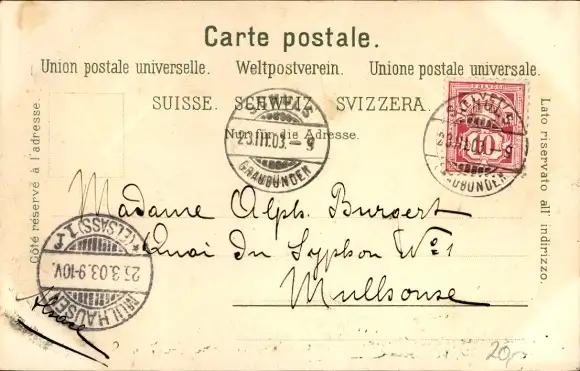 Carte postale.
Union postale universelle. Weltpostverein. Unione postale universale.
SUISSE. SCHWEIZ SVIZZERA.
Nur für die Adresse.
Côté réservé à l'adresse.
Lato riservato all' indirizzo.
SCHULS
23.III.03.-9
GRAUBÜNDEN
SCHULS
23.III.03.-9
GRAUBÜNDEN
FRANCO
10
Madame Alph. Burgert
Quai du Syphon No 1
Mulhouse
Alsace
MÜLHAUSEN
25.3.03.9-10V.
(ELSASS) 1
20,-